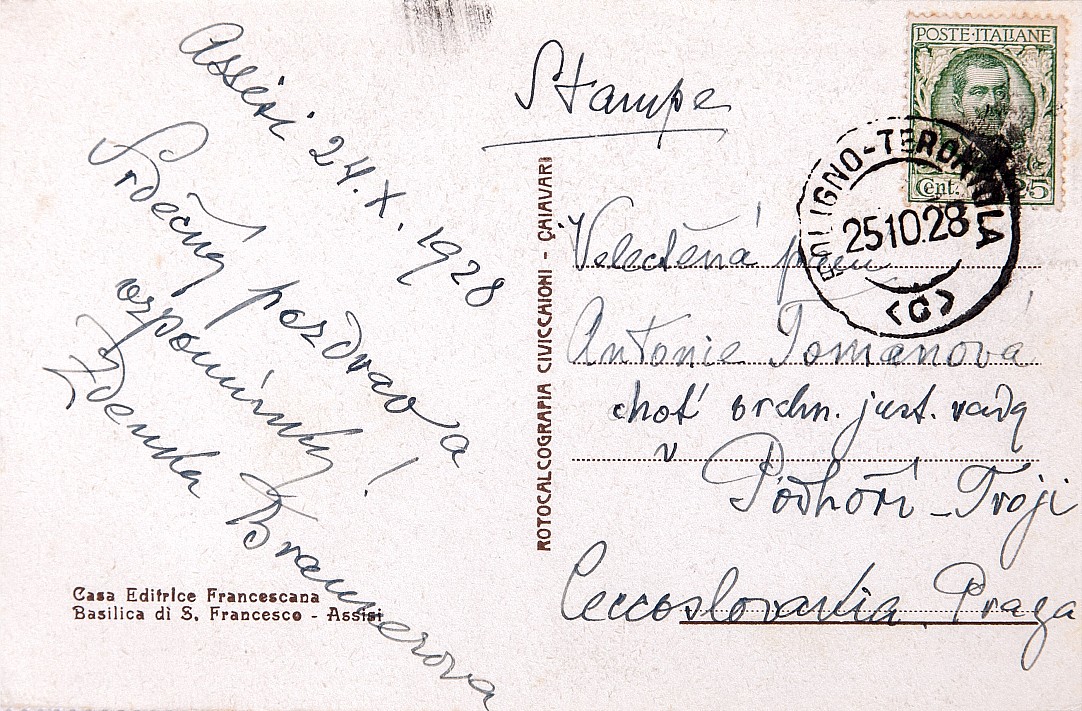 Assisi 24.X.1928
Srdečný pozdrav a
vzpomínky!
Zdenka Braunerova
Casa Editrice Francescana
Basilica di S. Francesco - Assisi
ROTOCALCOGRAFIA CIVICCHIONI - CHIAVARI
Stampe
POSTE·ITALIANE
Cent. 25
FOLIGNO-TERONTOLA
25 10.28
(C)
Velectěná paní
Antonie Tomanová
choť vrchn. just. rady
v Podhoří - Troji
Ceccoslovakia Praga